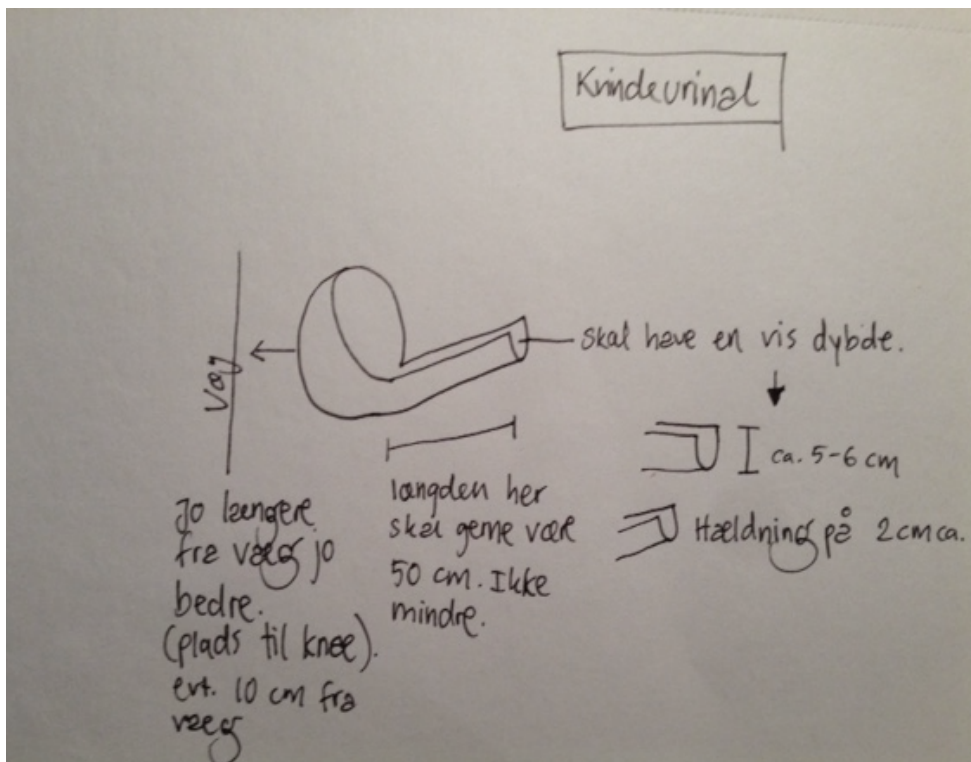 Kvindeurinal
Væg
skal have en vis dybde.
ca. 5-6 cm
Hældning på 2 cm ca.
længden her
skal gerne være
50 cm. Ikke
mindre.
Jo længere
fra væg jo
bedre.
(plads til knee).
evt. 10 cm fra
væg